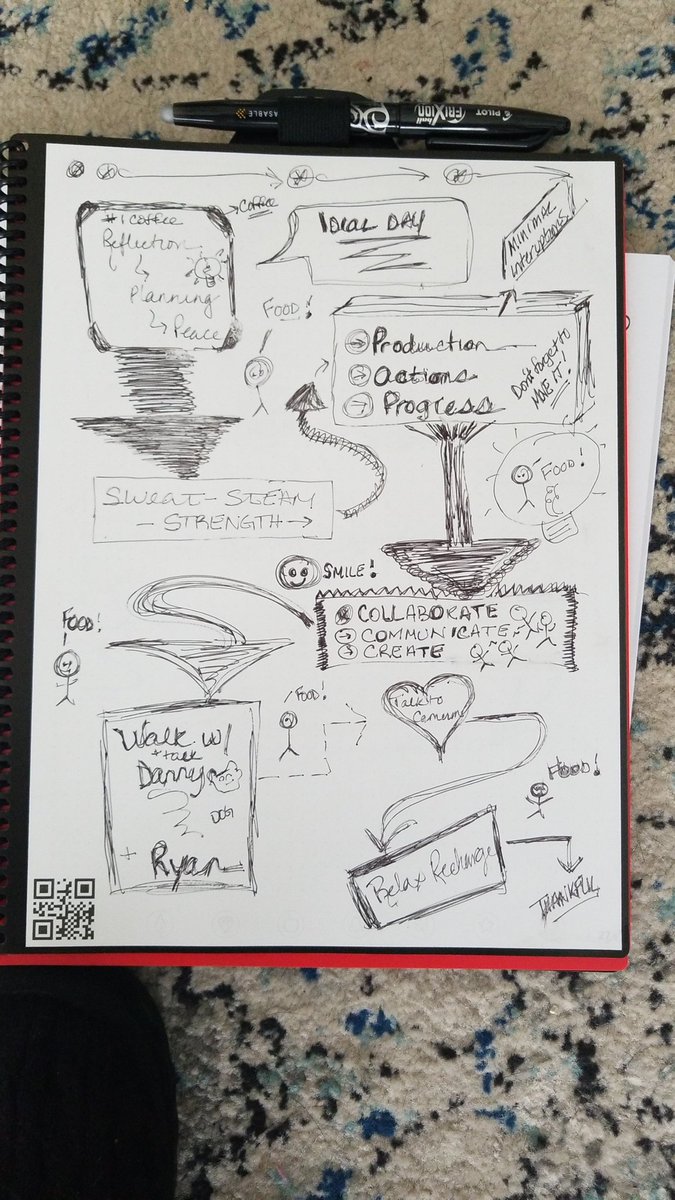 PILOT
FRIXION
ball
ERASABLE
#1 coffee
Reflection
Planning
Peace
Coffee
IDEAL DAY
Minimal
interruptions
FOOD!
Production
Actions
Progress
Don't forget to
MOVE IT!
SWEAT - STEAM
- STRENGTH
FOOD!
SMILE!
COLLABORATE
COMMUNICATE
CREATE
FOOD!
Walk w/
+ talk
Danny
DOG
+ Ryan
FOOD!
Talk to
FOOD!
Relax Recharge
THANKFUL